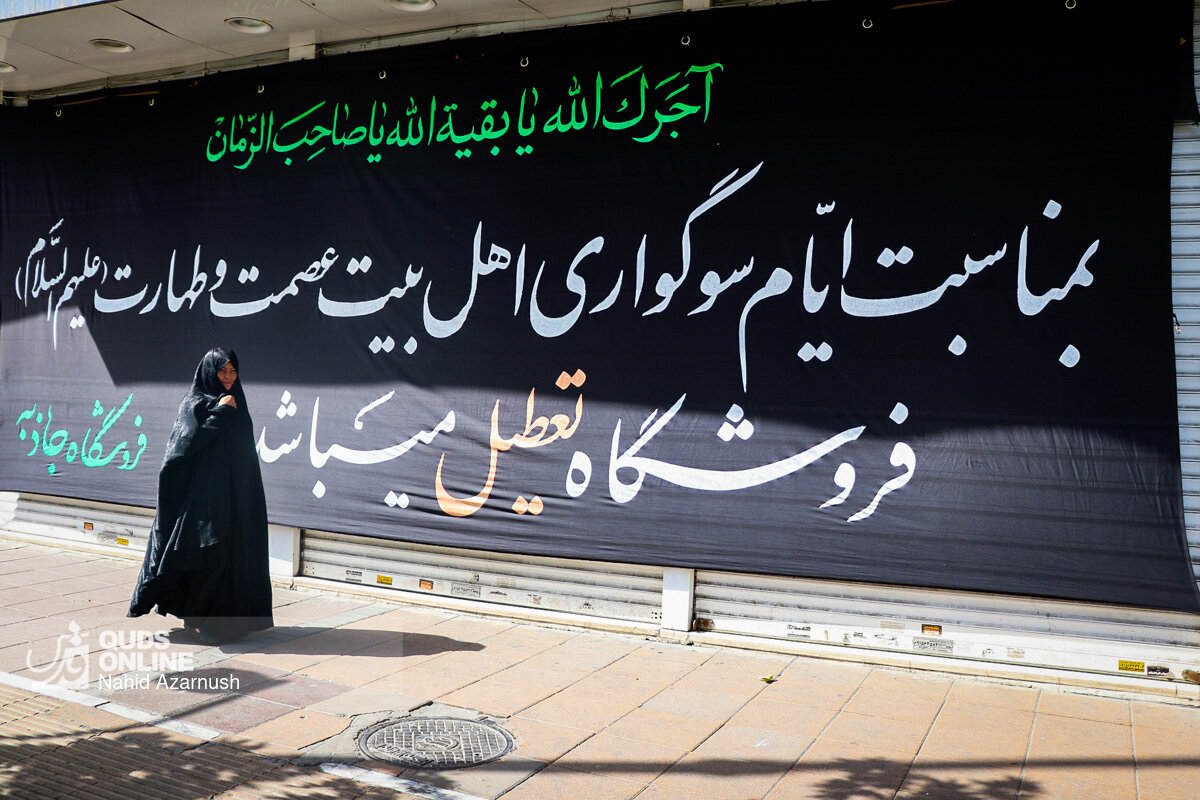 آجَرَكَ الله یا بقیة الله یا صاحِبَ الزّمان
بمناسبت ایّام سوگواری اهل بیت عصمت و طهارت (علیهم السَّلام)
فروشگاه تعطیل میباشد
فروشگاه جاذبه
قدس
QUDS
ONLINE
Nahid Azarnush